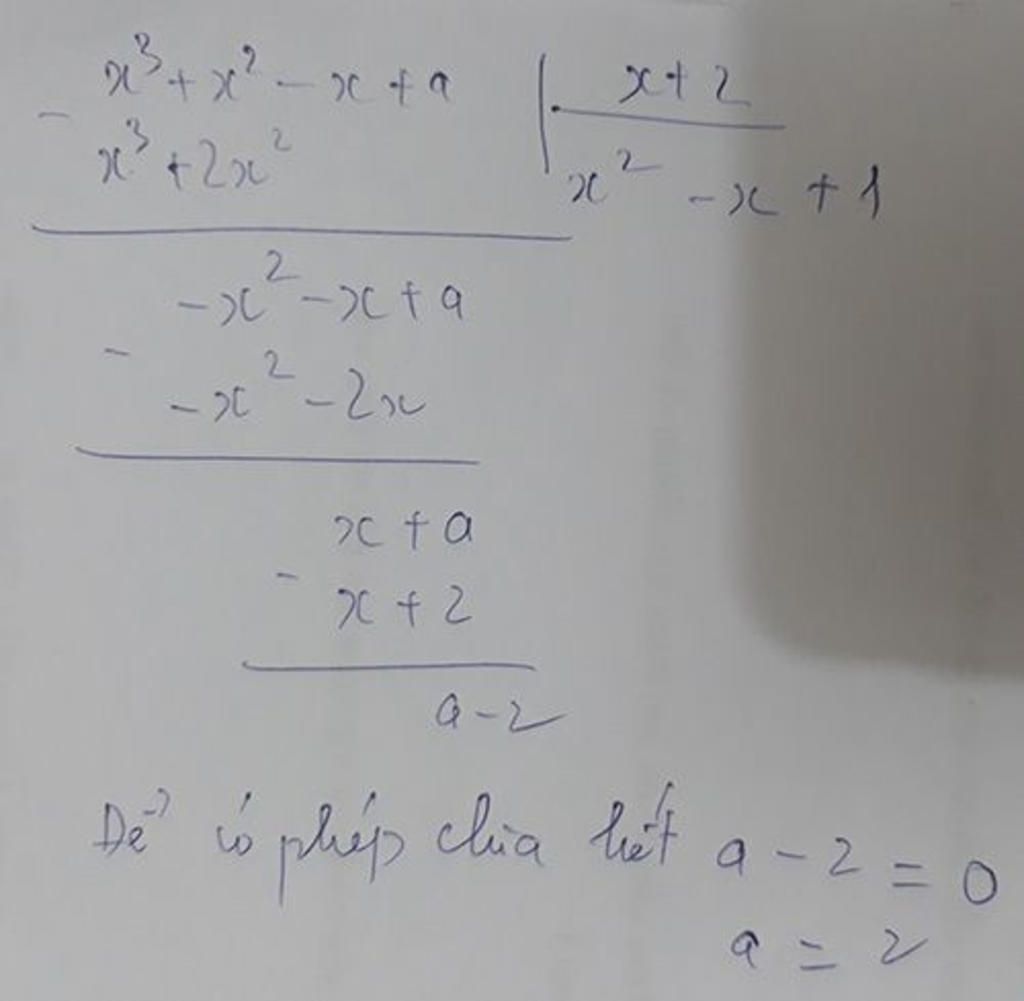 x³ + x² - x + a | x + 2
- x³ + 2x² | x² - x + 1
-x² - x + a
- -x² - 2x
x + a
- x + 2
a - 2
Để có phép chia hết a - 2 = 0
a = 2